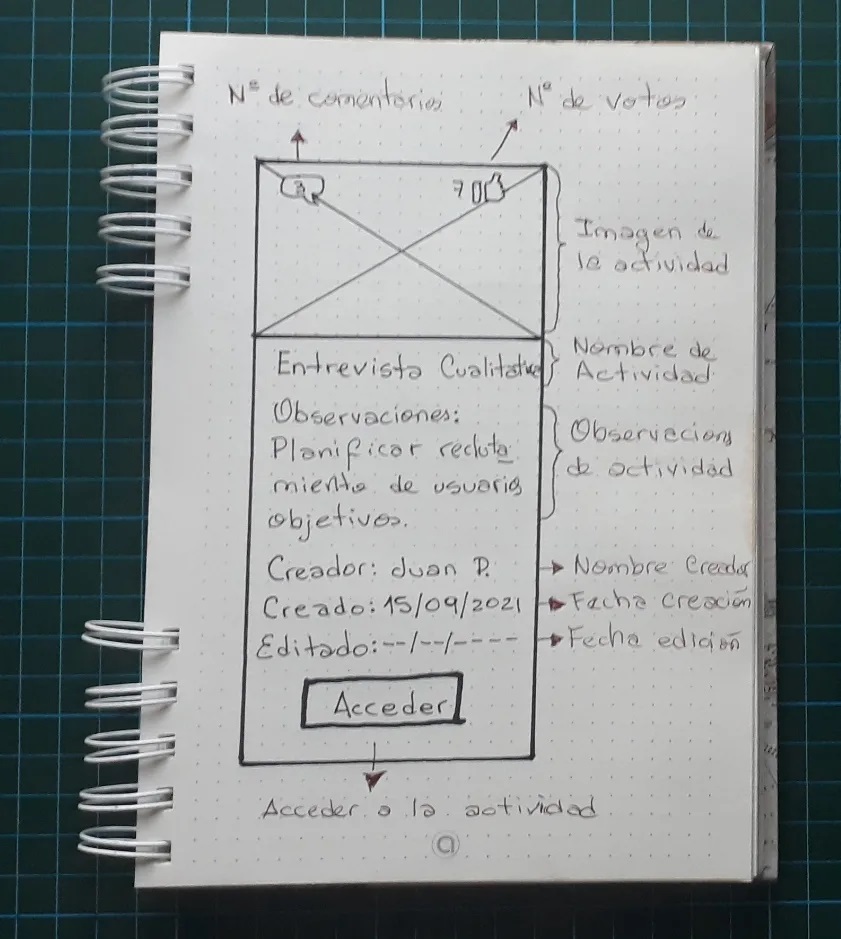 Nº de comentarios
Nº de votos
3
7
Imagen de
la actividad
Entrevista Cualitativa
Nombre de
Actividad
Observaciones:
Planificar recluta
miento de usuarios
objetivos.
Observacions
de actividad
Creador: Juan P.
Nombre Creador
Creado: 15/09/2021
Fecha creación
Editado: --/--/----
Fecha edición
Acceder
Acceder a la actividad
a